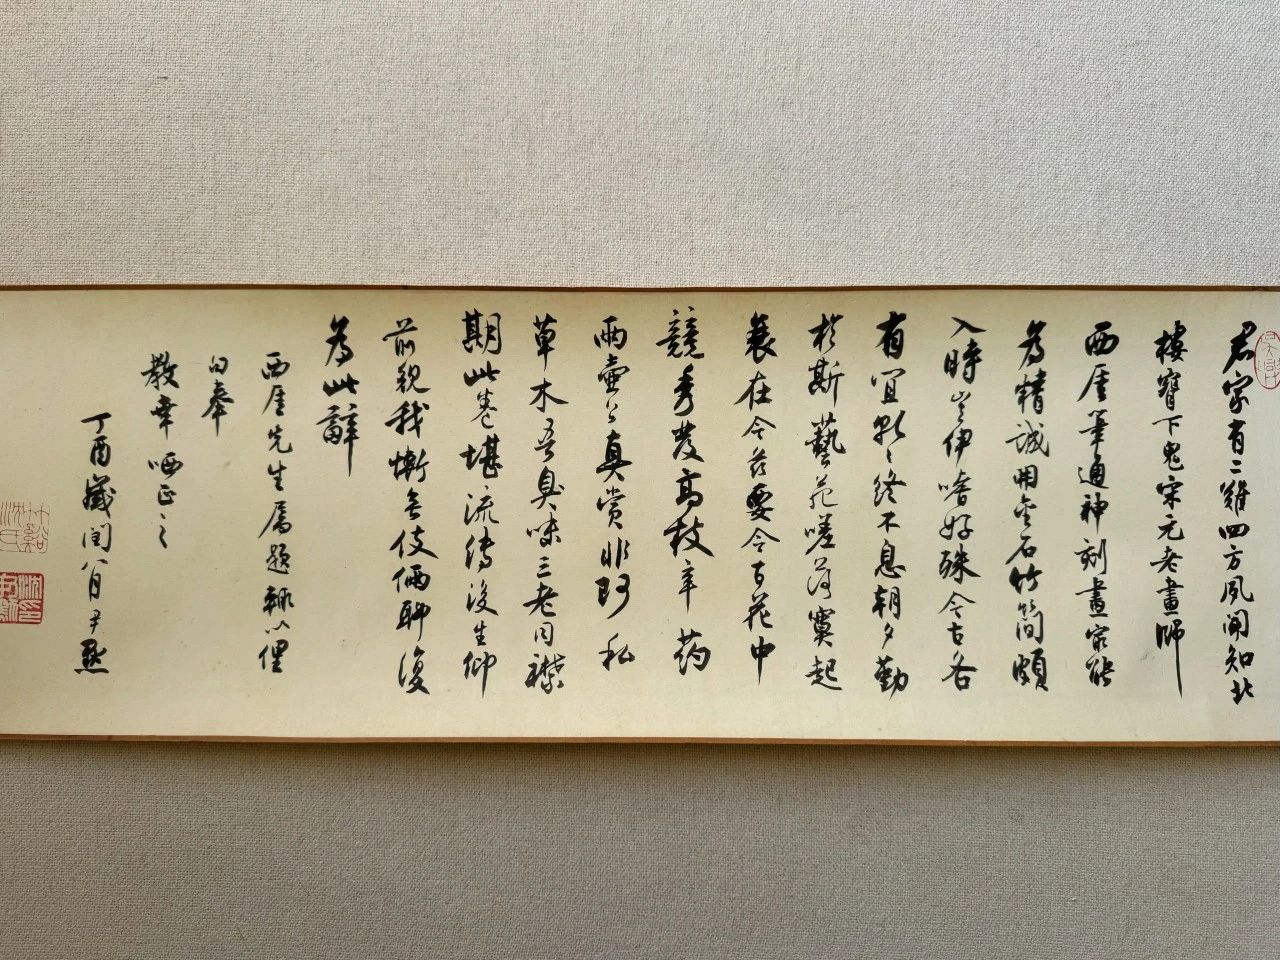 君家有二難四方夙聞知北
樓腎下鬼宋元老畫師
西厓筆通神刻畫家能
為精誠開金石竹簡頗
入時豈伊嗜好殊今古各
有宜縣縣終不息朝夕勤
於斯藝苑嗟荷寞起
衰在今茲要令古花中
競秀發高枝辛葯
兩壺公真賞非阿私
草木吾臭味三老同襟
期此卷堪流傳後生仰
前規我慚無伎倆聊復
為此辭
西厓先生屬題輒以俚
句奉
教幸哂正之
丁酉歲閏八月尹默
竹谿沈氏